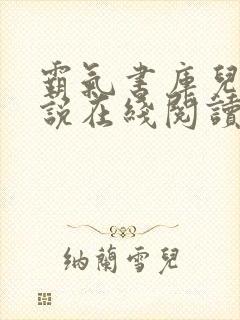 霸氣書庫兒
說在綫閱讀
納蘭雪兒